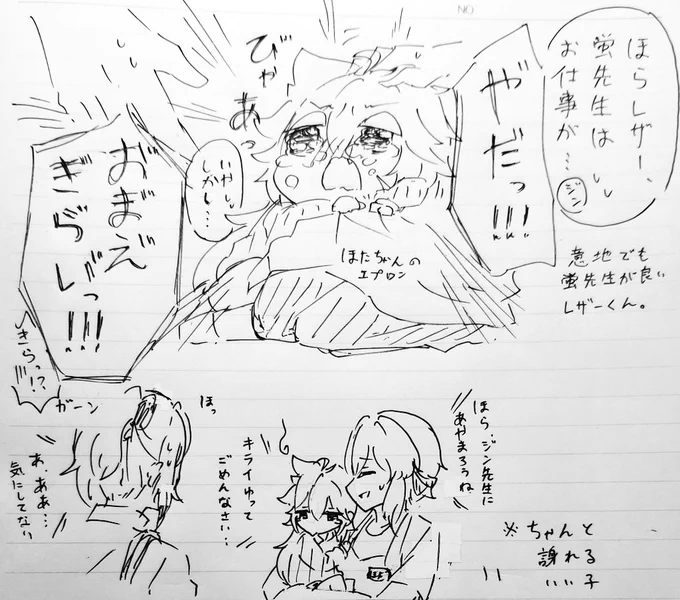 NO
ほらレザー、
蛍先生は
お仕事が…
ジン
やだっ!!!
びゃあっ
いや…
しかし…
ほたちゃんの
エプロン
おまえ
ぎらいっ!!!
意地でも
蛍先生が良い
レザーくん。
きらっ!?
ガーン
ほっ
あ、ああ…
気にしてない
キライゆって
ごめんなさい…
ほら ジン先生に
あやまろうね
※ちゃんと
謝れる
いい子